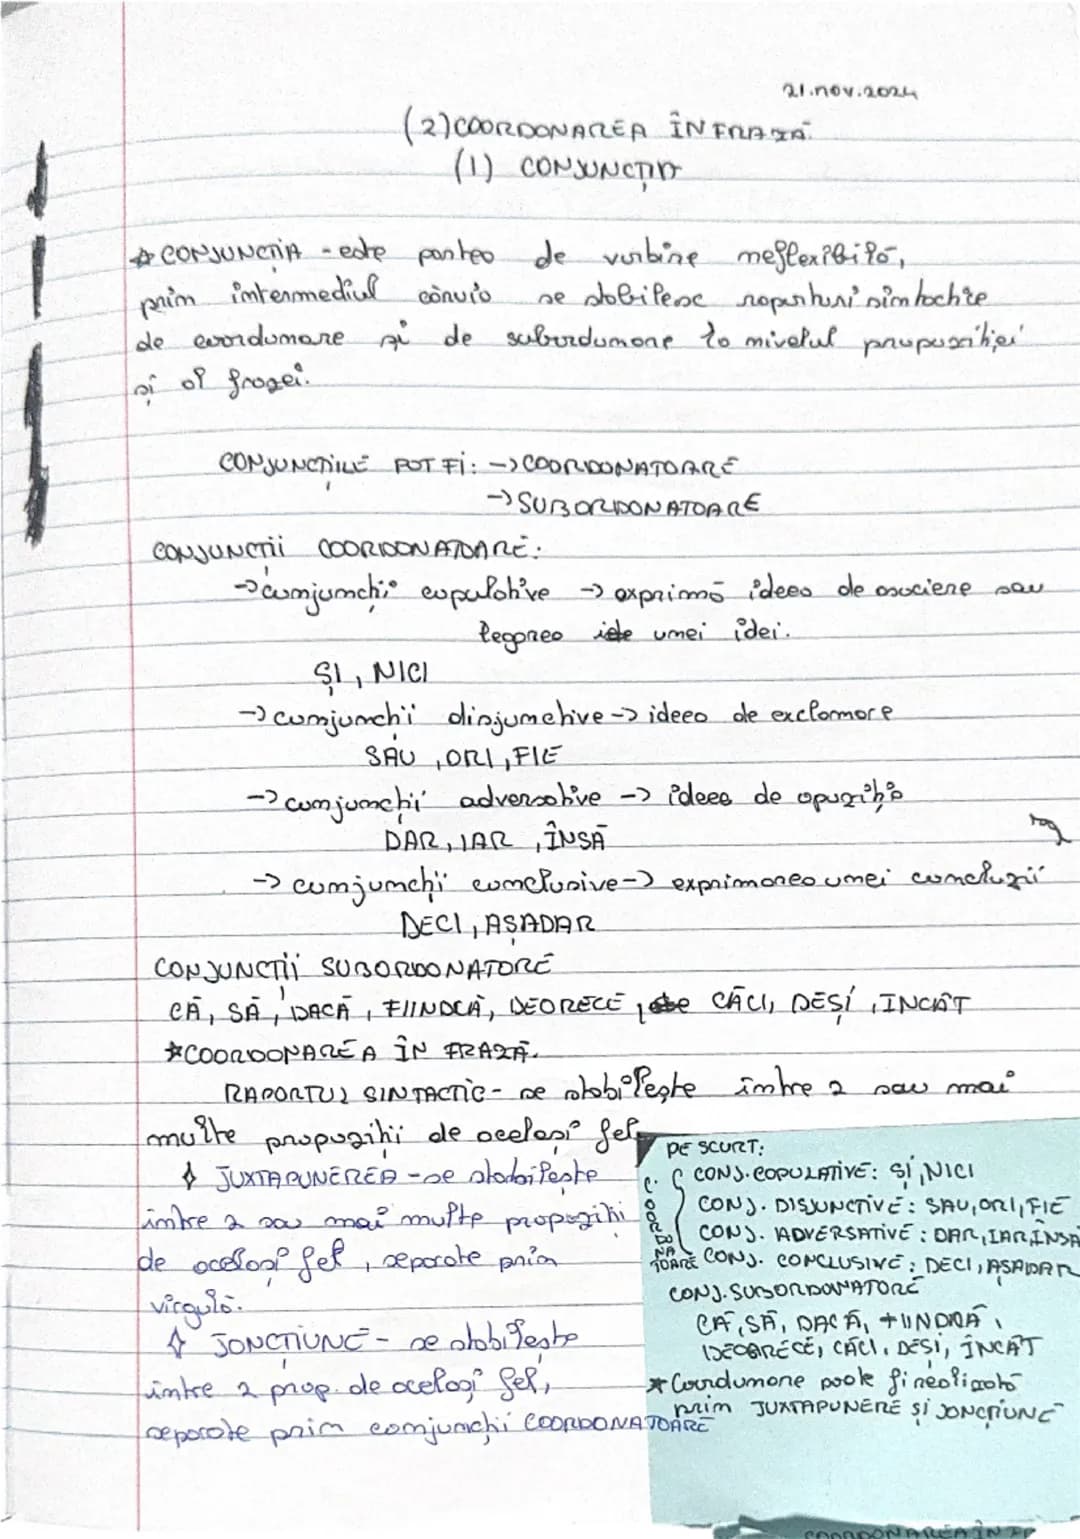 21.nov.2024
(2) COORDONAREA ÎN FRAZĂ.
(1) CONJUNCȚIA
☆ CONJUNCȚIA - este partea de vorbire neflexibilă,
prin intermediul căruia se stabilesc raporturi sintactice
de coordonare și de subordonare la nivelul propoziției
și al frazei.
CONJUNCȚIILE POT FI: -> COORDONATOARE
-> SUBORDONATOARE
CONJUNCȚII COORDONATOARE:
-> conjuncții copulative -> exprimă ideea de asociere sau
legarea unei idei.
ȘI, NICI
-> conjuncții disjunctive -> ideea de exclamare
SAU, ORI, FIE
-> conjuncții adversative -> ideea de opoziție
DAR, IAR, ÎNSĂ
-> conjuncții conclusive -> exprimarea unei concluzii
DECI, AȘADAR
CONJUNCȚII SUBORDONATORE
CĂ, SĂ, DACĂ, FIINDCĂ, DEORECE, CĂCI, DEȘI, INCÂT
☆COORDONAREA ÎN FRAZĂ.
RAPORTUL SINTACTIC - se stabilește între 2 sau mai
multe propoziții de același fel
JUXTAPUNEREA - se stabilește
între 2 sau mai multe propoziții
de același fel, separate prin
virgulă.
JONCȚIUNE - se stabilește
între 2 prop. de același fel,
separate prin conjuncții COORDONATOARE
PE SCURT:
COORDONATOARE
CONJ. COPULATIVE: ȘI, NICI
CONJ. DISJUNCTIVE: SAU, ORI, FIE
CONJ. ADVERSATIVE: DAR, IAR, ÎNSĂ
CONJ. CONCLUSIVE: DECI, AȘADAR
CONJ. SUBORDONATORE
CĂ, SĂ, DACĂ, FIINDCĂ,
DEOARECE, CĂCI, DEȘI, ÎNCÂT
* Coordonare poate fi realizată
prin JUXTAPUNERE ȘI JONCȚIUNE
COORDONAREA ÎN